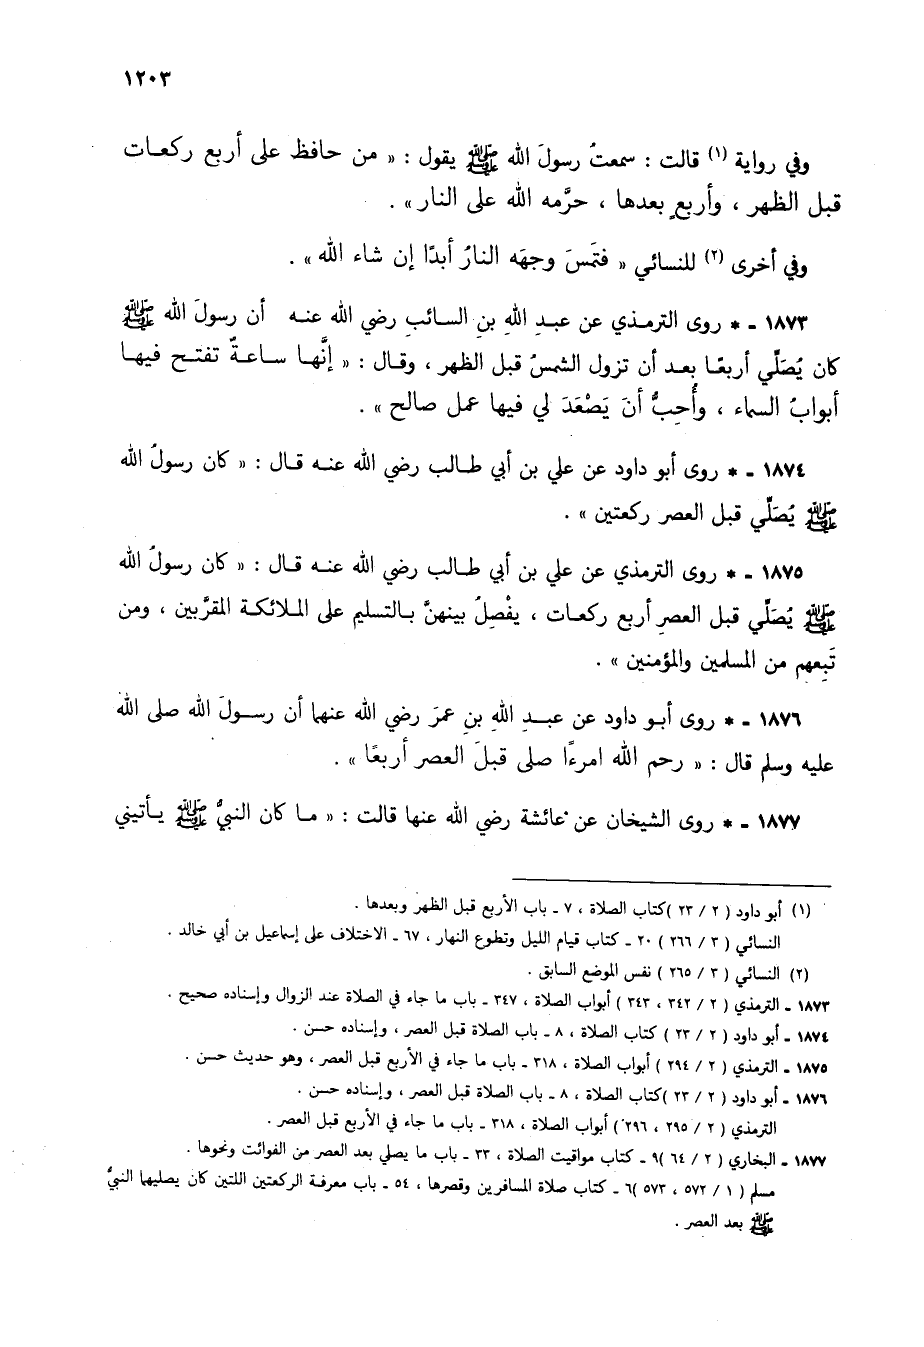 ١٢٠٣
وفي رواية (١) قالت : سمعتُ رسولَ الله ﷺ يقول : « من حافظ على أربع ركعـات
قبل الظهر ، وأربعٍ بعدها ، حرَّمه الله على النار» .
وفي أخرى (٢) للنسائي « فتمَسَّ وجهَه النارُ أبدًا إن شاء الله» .
١٨٧٣ - * روى الترمـذي عن عبـدِ اللهِ بنِ السـائبِ رضي الله عنـه أن رسولَ الله ﷺ
كان يُصَلِّي أربعًـا بعـد أن تزول الشمسُ قبل الظهر ، وقـال : « إنَّهـا سـاعـةٌ تفتـح فيهـا
أبوابُ السماء ، وأُحِبُّ أنَ يَصْعَدَ لي فيها عمل صالح » .
١٨٧٤ - * روى أبو داود عن علي بن أبي طـالب رضي الله عنـه قـال : « كان رسولُ الله
ﷺ يُصَلِّي قبل العصر ركعتين » .
١٨٧٥ - * روى الترمذي عن علي بن أبي طـالب رضي الله عنـه قـال : « كان رسولُ الله
ﷺ يُصَلِّي قبل العصرِ أربع ركعـات ، يفْصِلُ بينهنَّ بـالتسليم على المـلائكـة المقرَّبين ، ومن
تَبِعهم من المسلمين والمؤمنين » .
١٨٧٦ - * روى أبـو داود عن عبـدِ اللهِ بنِ عمرَ رضي الله عنهما أن رسـولَ الله صلى الله
عليه وسلم قال : « رحم الله امرءًا صلى قبلَ العصر أربعًا » .
١٨٧٧ - * روى الشيخان عن عائشة رضي الله عنها قالت : « مـا كان النبيُّ ﷺ يـأتيني
(١) أبو داود ( ٢ / ٢٣ )كتاب الصلاة ، ٧ - باب الأربع قبل الظهر وبعدها .
النسائي ( ٣ / ٢٦٦ ) ٢٠ - كتاب قيام الليل وتطوع النهار ، ٦٧ - الاختلاف على إسماعيل بن أبي خالد .
(٢) النسائي ( ٣ / ٢٦٥ ) نفس الموضع السابق .
١٨٧٣ - الترمذي ( ٢ / ٣٤٢ ، ٣٤٣ ) أبواب الصلاة ، ٣٤٧ - باب ما جاء في الصلاة عند الزوال وإسناده صحيح .
١٨٧٤ - أبو داود ( ٢ / ٢٣ ) كتاب الصلاة ، ٨ - باب الصلاة قبل العصر ، وإسناده حسن .
١٨٧٥ - الترمذي ( ٢ / ٢٩٤ ) أبواب الصلاة ، ٣١٨ - باب ما جاء في الأربع قبل العصر ، وهو حديث حسن .
١٨٧٦ - أبو داود ( ٢ / ٢٣ )كتاب الصلاة ، ٨ - باب الصلاة قبل العصر ، وإسناده حسن .
الترمذي ( ٢ / ٢٩٥ ، ٢٩٦ ) أبواب الصلاة ، ٣١٨ - باب ما جاء في الأربع قبل العصر .
١٨٧٧ - البخاري ( ٢ / ٦٤ )٩ - كتاب مواقيت الصلاة ، ٣٣ - باب ما يصلي بعد العصر من الفوائت ونحوها .
مسلم ( ١ / ٥٧٢ ، ٥٧٣ )٦ - كتاب صلاة المسافرين وقصرها ، ٥٤ - باب معرفـة الركعتين اللتين كان يصليهـا النبيُّ
ﷺ بعد العصر .